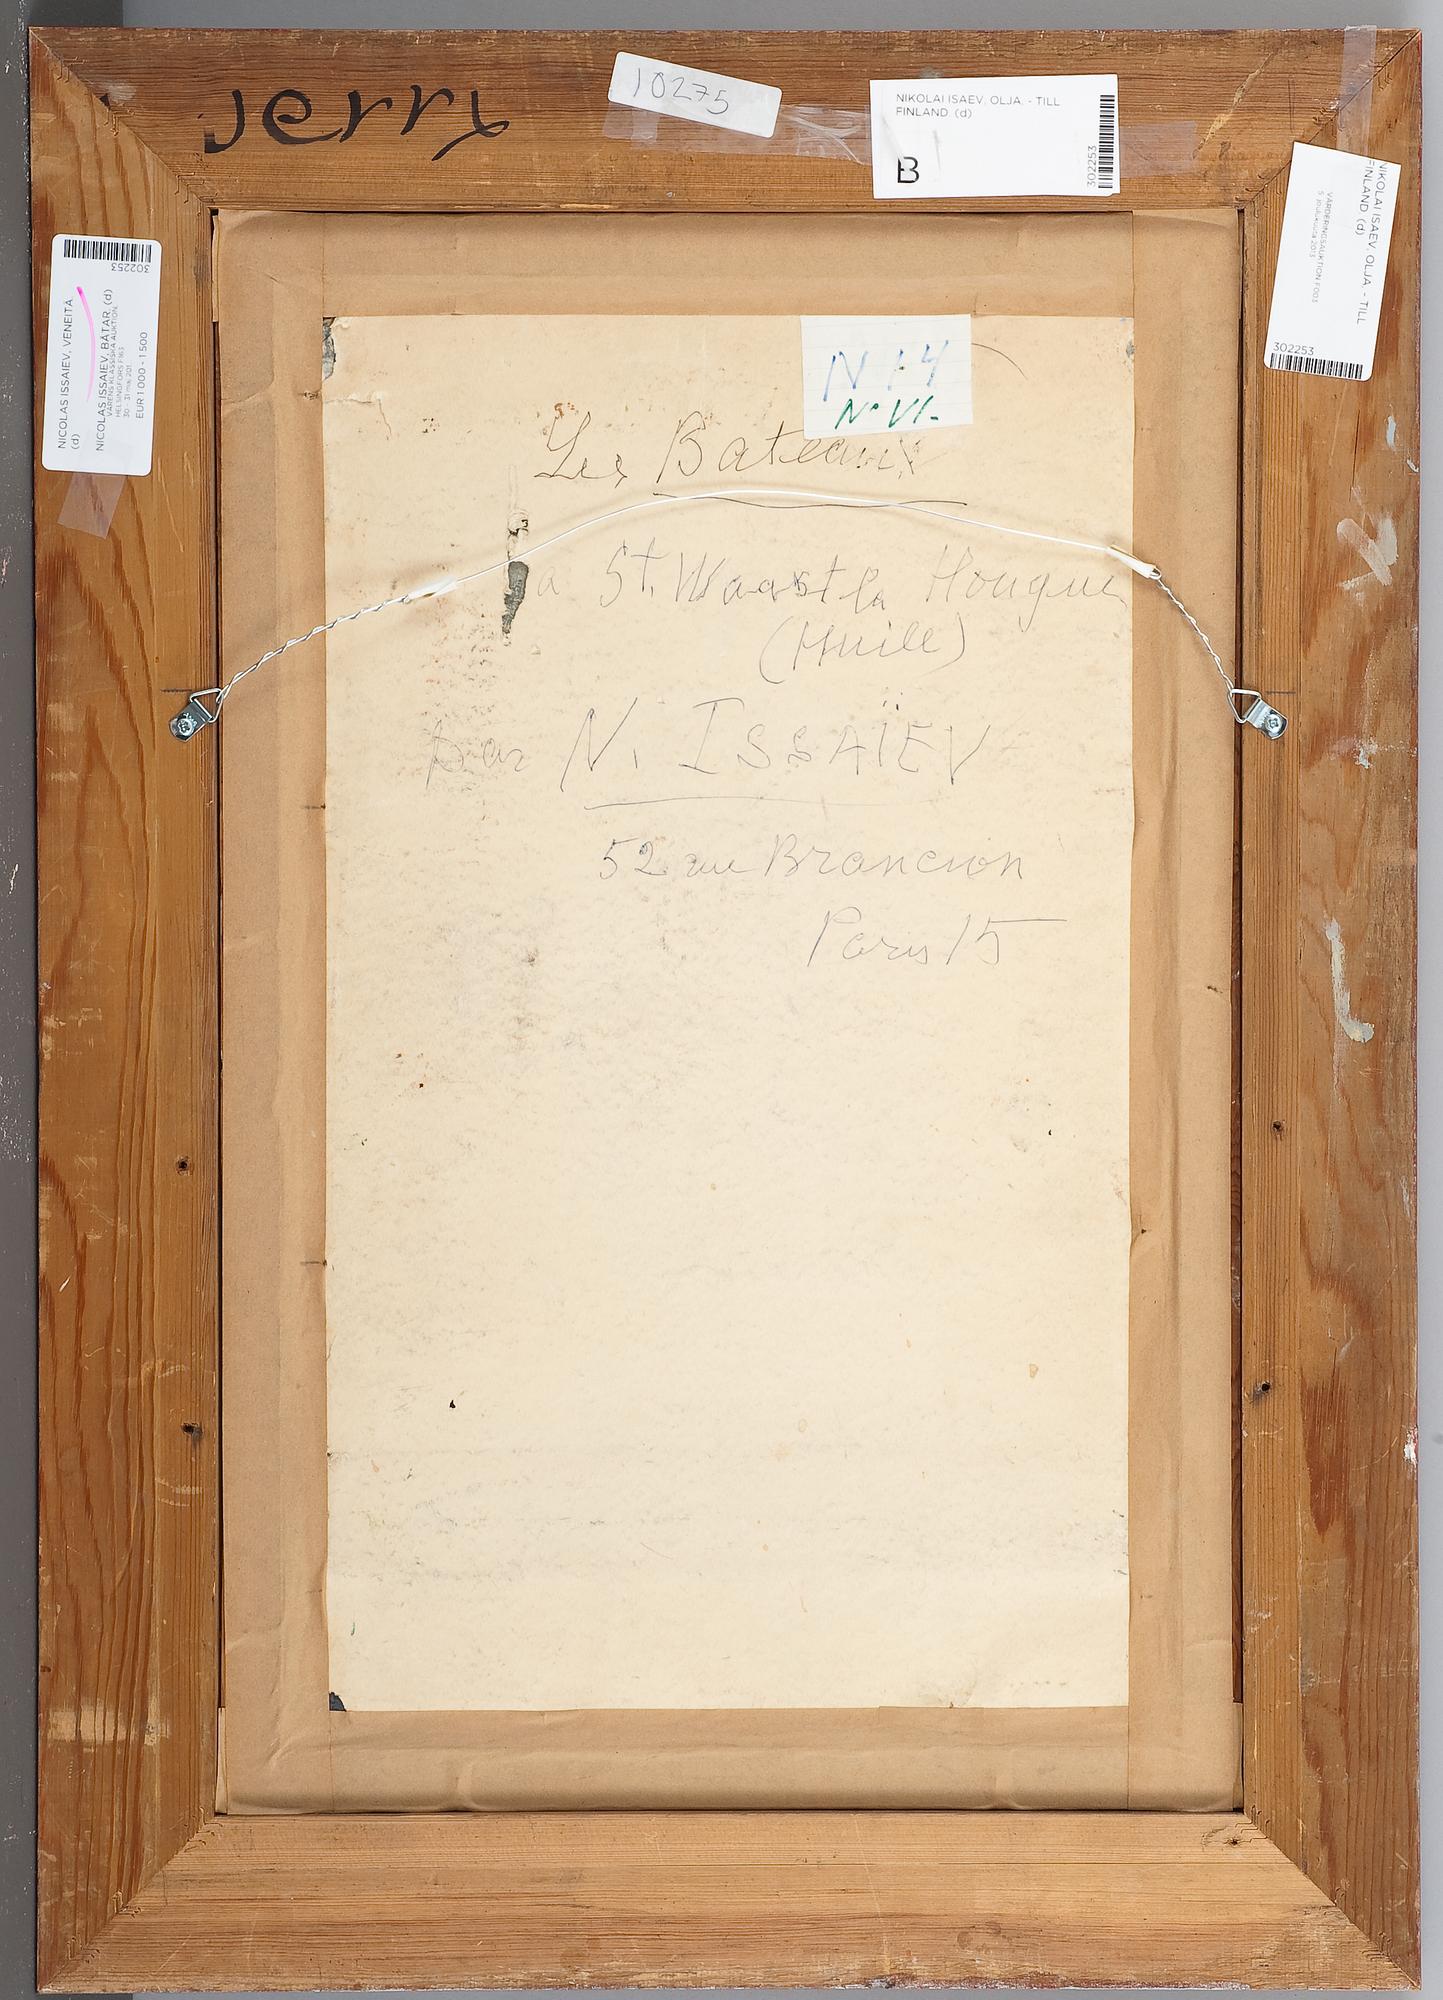 Jerry
10275
NIKOLAI ISAEV, OLJA. - TILL
FINLAND. (d)
B
302253
NIKOLAI ISAEV, OLJA. - TILL
FINLAND. (d)
VÄRDERINGSAUKTION F003
5 joulukuuta 2013
302253
302253
NICOLAS ISSAIEV, VENEITÄ.
(d)
NICOLAS ISSAIEV, BÅTAR. (d)
VÅRENS KLASSISKA AUKTION,
HELSINGFORS F163
EUR 1 000 - 1 500
N 14
N° VI-
Les Bateaux
a St. Waast la Hougue
(Huile)
par N. ISSAÏEV
52 rue Brancion
Paris 15